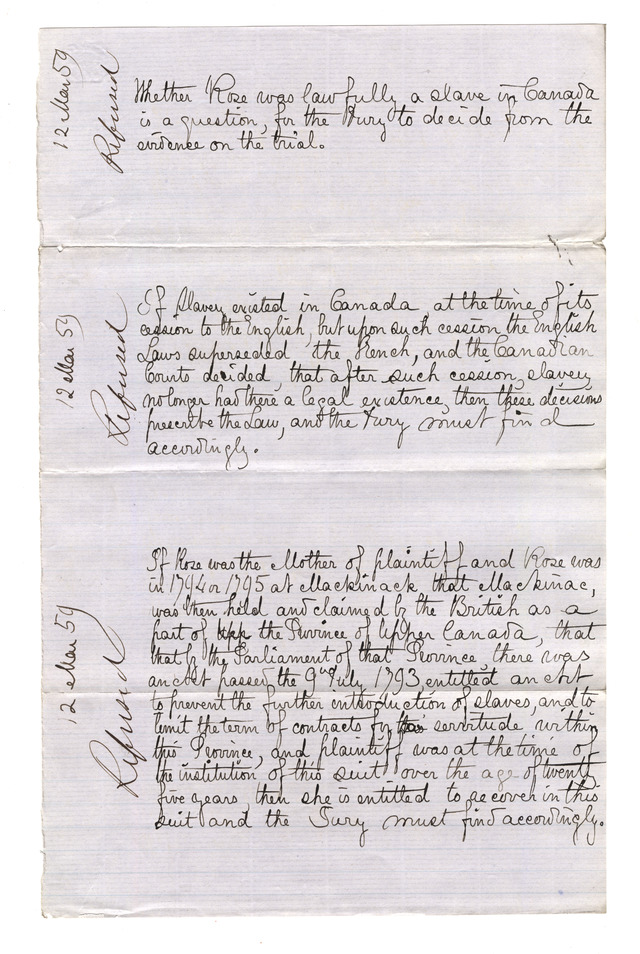 12 Mar 59
Refused
Whether Rose was lawfully a slave in Canada
is a question, for the Jury to decide from the
evidence on the trial.
12 Mar 59
Refused
If Slavery existed in Canada at the time of its
cession to the English, but upon such cession the English
Laws superseded the French, and the Canadian
Courts decided, that after such cession, slavery,
no longer had there a legal existence, then these decisions
prescribe the Law, and the Jury must find
accordingly.
12 Mar 59
Refused
If Rose was the Mother of plaintiff and Rose was
in 1794 or 1795 at Mackinack, that Mackinac,
was then held and claimed by the British as a
part of Upp the Province of Upper Canada, that
that by the Parliament of that Province, there was
an act passed, the 9th July 1793, entitled an act
to prevent the further introduction of slaves, and to
limit the term of contracts for servitude within
this Province, and plaintiff was at the time of
the institution of this suit over the age of twenty
five years, then she is entitled to recover in this
suit and the Jury must find accordingly.